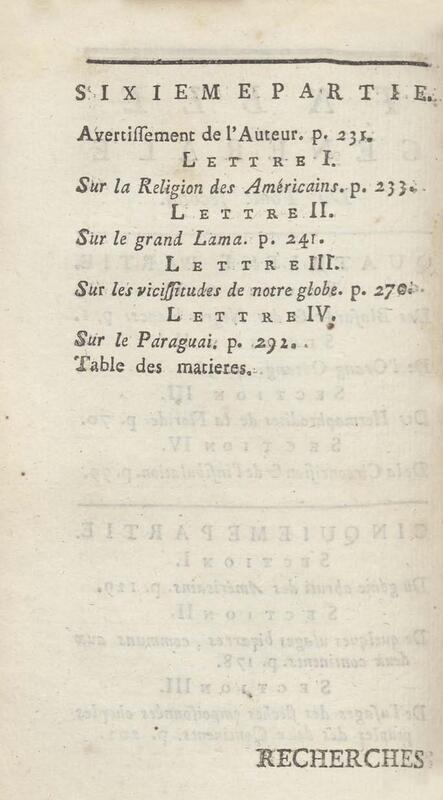 SIXIEME PARTIE.
Avertiſſement de l'Auteur. p. 231.
LETTRE I.
Sur la Religion des Américains. p. 233.
LETTRE II.
Sur le grand Lama. p. 241.
LETTRE III.
Sur les viciſſitudes de notre globe. p. 270.
LETTRE IV.
Sur le Paraguai. p. 292.
Table des matieres.
RECHERCHES